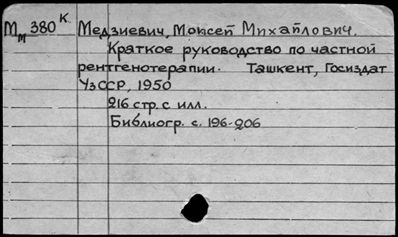 Мт 380 К. Медзиевич, Моисей Михайлович.
Краткое руководство по частной
рентгенотерапии. Ташкент, Госиздат
УзССР, 1950
216 стр. с илл.
Библиогр. с. 196-206